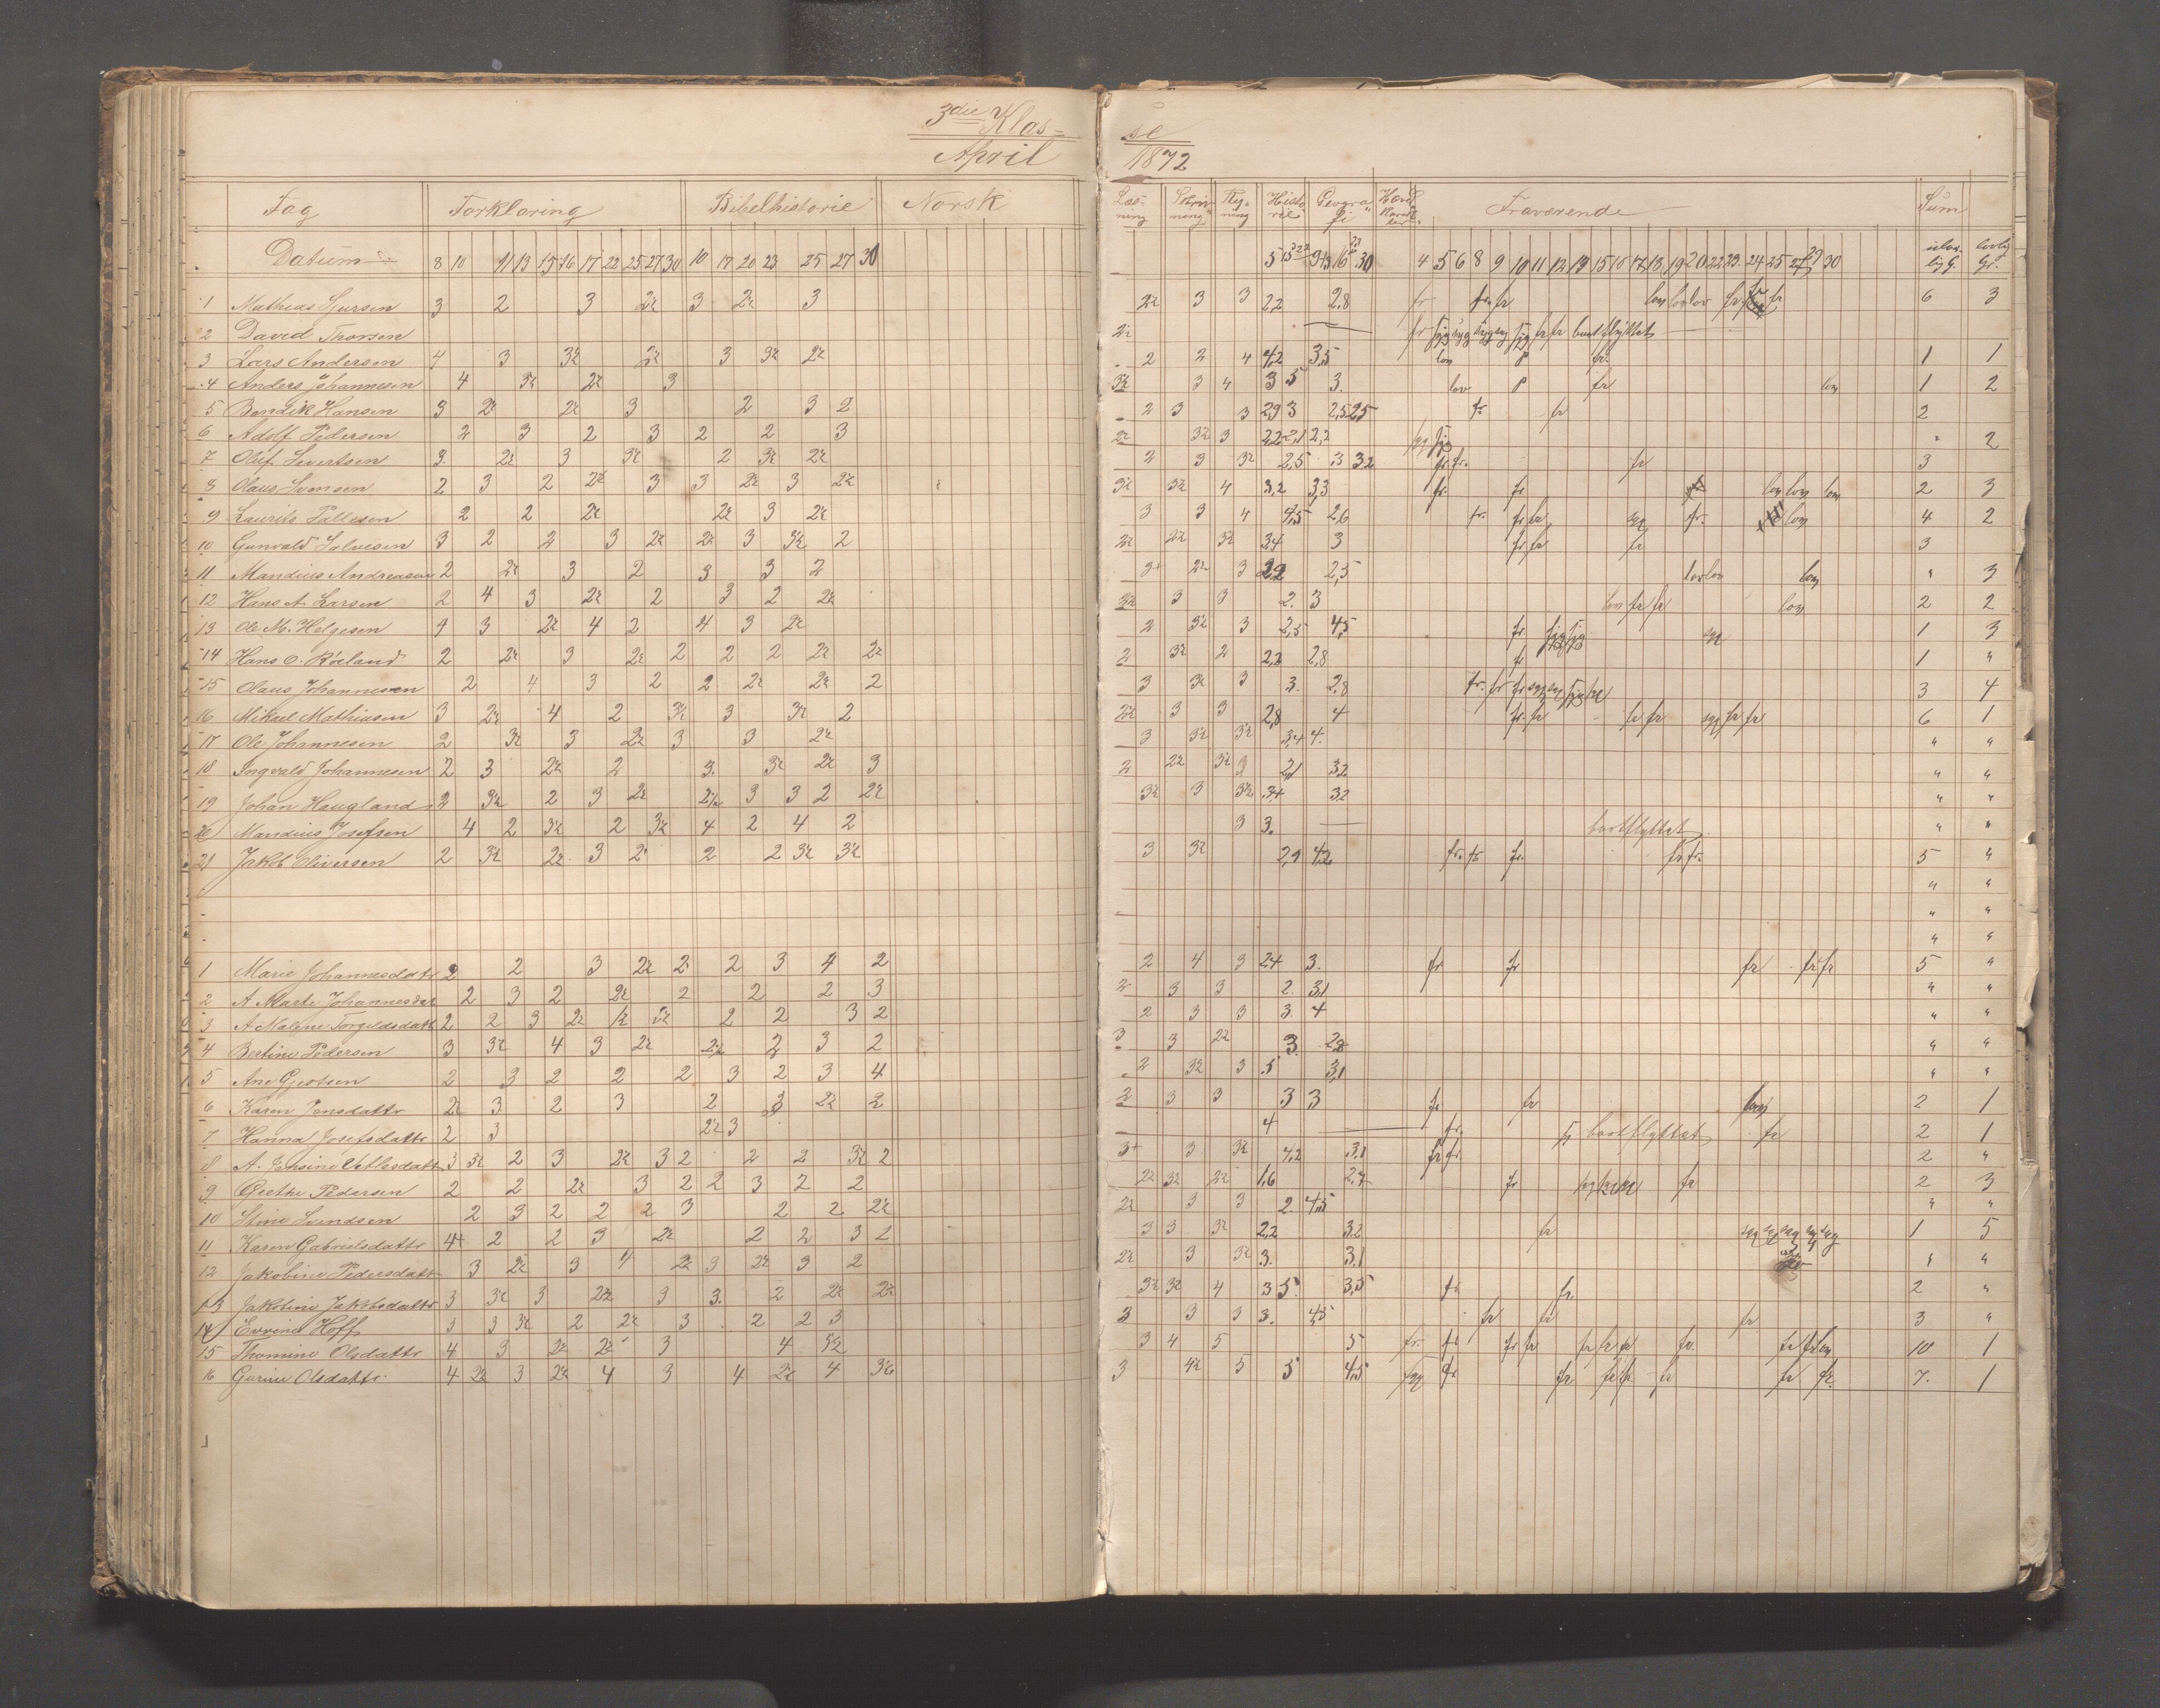 3die Klas-
April
Fag Forklaring Bibelhistorie Norsk
Datum 8 10 11 13 15 16 17 22 25 27 30 10 17 20 23 25 27 30
1 Mathias Sjursen 3 2 3 2½ 3 2½ 3
2 David Thorsen
3 Lars Andersen 4 3 3½ 2½ 3 3½ 2½
4 Anders Johannesen 4 3½ 2½ 3
5 Bendik Hansen 3 2½ 2½ 3 2 3 2
6 Adolf Pedersen 2 3 2 3 2 2 3
7 Oluf Sivertsen 3 2½ 3 3½ 2 3½ 2½
8 Olaus Svensen 2 3 2 2½ 3 3 2½ 3 2½
9 Laurits Pallesen 2 2 2½ 2½ 3 2½
10 Gunvald Salvesen 3 2 2 3 2½ 2½ 3 3½ 2
11 Mandius Andreasen 2 2½ 3 2 3 3 2
12 Hans A. Larsen 2 4 3 2½ 2 3 2 2½
13 Ole M. Helgesen 4 3 2½ 4 2 4 3 2½
14 Hans O. 2 2½ 3 2½ 2 2 2 2½ 2½
15 Olaus Johannesen 2 4 3 2 2 2½ 2½ 2
16 Mikael Mathiasen 3 2½ 4 2 3½ 3 3½ 2
17 Ole Johannesen 2 3½ 3 2½ 3 3 2½
18 Ingvald Johannesen 2 3 2½ 2 3 3½ 2½ 3
19 Johan Haugland 2 3½ 2 3 2½ 2½ 3 3 2 2½
20 Mandius Josefsen 4 2 3½ 2 3½ 4 2 4 2
21 Jakob Oliversen 2 3½ 2½ 3 2 2 2 3½ 3½
1 Marie Johannesdatr 2 2 3 2½ 2 2 3 4 2
2 A Marte Johannesdat 2 3 2 2½ 2 2 2 3
3 A Malene Torgildsdatt 2 2 3 2½ 2½ 2 2 3 2
4 Bertine Pedersen 3 3½ 4 3 2½ 2½ 2 3 2
5 Ane Gjertsen 2 3 2 2 2 3 2 3 4
6 Karen Jensdattr 2½ 3 2 3 2 3 2½ 2
7 Hanna Josefsdattr 2 3 2½ 3
8 A. Jensine Atlesdatt 3 3½ 2 3 2½ 3 2 2 2 3½ 2
9 Grethe Pedersen 2 2 2½ 3 2 2 3 2 2
10 Stine Svendsen 2 3 2 2 2 3 2 2 2½
11 Karen Gabrielsdattr 4+ 2 2 3 2½ 2 2 3 2
12 Jakobine Pedersdatt 3 2½ 3 4 2½ 3 2½ 3 2
13 Jakobine Jakobsdattr 3 3½ 3 2½ 3 3. 2 2½ 2½
14 Hoff 3 3 3½ 2 2½ 3 2 2 3
15 Thomine Olsdattr 4 3 2½ 2½ 3 4
16 Gurine Olsdattr. 4 2½ 3 2½ 4 3 4 2½ 4 3½
se
1872
Læs-ning Skriv-ning Reg-ning Histo-rie Geogra-fi Fraværende Sum
5 15 30 4 5 6 8 9 10 11 12 13 15 16 17 18 19 20 22 23 24 25 27 29 30 lovlig G.
2½ 3 3 2,2 2,8 fr fr fr lov lov lov fr fr 6 3
2½ fr syg syg syg syg syg fr fr bortflyttet
2 2 4 4,2 3,5 lov fr 1 1
3½ 3 4 3 5 3. lov fr lov 1 2
2 3 3 2,9 3 2,5 2,5 fr fr 2
2½ 3½ 3 2,2 2,1 2,2 syg syg " 2
2 3 3½ 2,5 3 3,2 fr. fr. fr 3
3½ 3½ 4 3,2 3,3 fr. fr lov lov lov 2 3
3 3 4 4,5 2,6 fr. fr fr syg fr. lov 4 2
2½ 2½ 3½ 3,4 3 fr fr fr 3
3+ 2½ 3 2,2 2,5 lov lov lov " 3
3½ 3 3 2. 3 lov fr fr lov 2 2
2 3½ 3 2,5 4,5 fr syg syg syg 1 3
2 3½ 2 2,2 2,8 fr 1 "
3 3½ 3 3. 2,8 fr. fr fr syg syg syg syg 3 4
2½ 3 3 2,8 4 fr. fr fr fr syg fr fr 6 1
3 3½ 3½ 3,4 4. " "
2 2½ 3½ 2,1 3,2 " "
3½ 3 3½ 3,4 3,2 " "
3 3. bortflyttet " "
3 3½ 2,9 4,2 fr. fr fr. fr fr. 5 "
" "
" "
" "
2 4 3 2,4 3. fr fr fr fr fr 5 "
2 3 3 2. 3,1 " "
2 3 3 3. 4 " "
3 3 2½ 3. 2,8 " "
2 3½ 3 5 3,1 " "
2 3 3 3 3 fr fr lov 2 1
4 fr. bortflyttet fr 2 1
3+ 3 3½ 4,2 3,1 fr fr. 2 "
2½ 3½ 2½ 1,6 2,7 fr fr 2 3
2½ 3 3 2. 4,5 " "
3 3 3½ 2,2 3,2 fr syg syg syg syg syg 1 5
2½ 3 3½ 3. 3,1 " "
3½ 3½ 4 3 5. 3,5 fr fr. 2 "
3 3 3 3. 4,5 fr fr fr 3 "
3 4 5 5 fr. fr fr fr fr fr fr fr. fr fr lov 10 1
3 4½ 5 5 4,5 syg fr fr fr fr fr fr fr. 7. 1